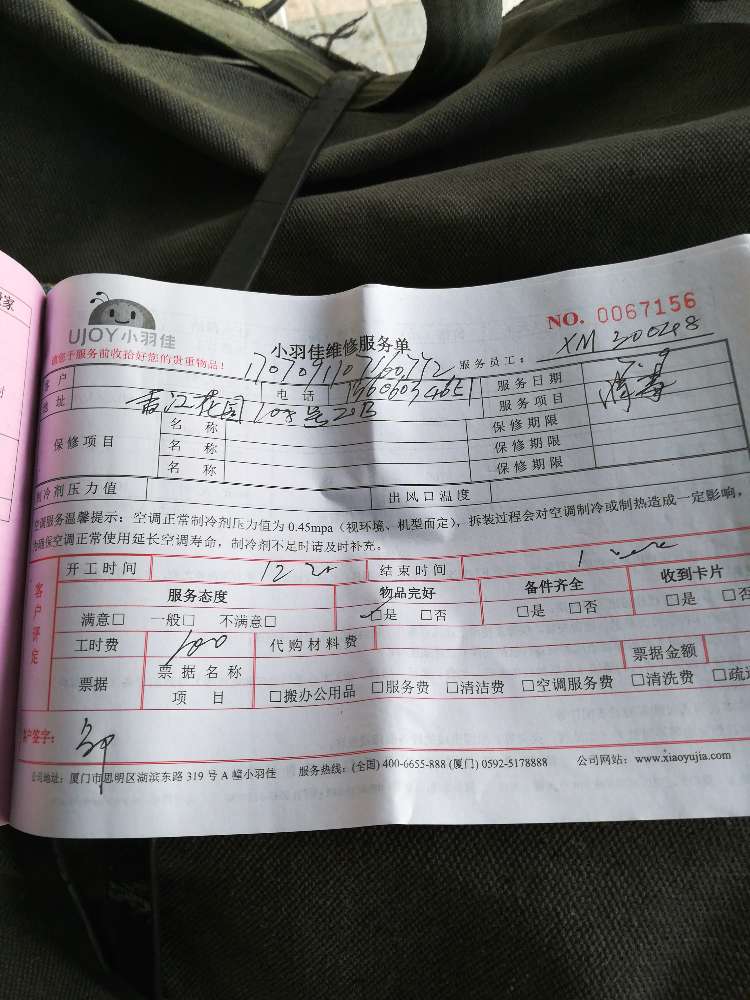 NO. 0067156
UJOY 小羽佳
小羽佳维修服务单
请您于服务前收拾好您的贵重物品!
服务员工: XM 200298
客户
电话
服务日期
地址 香江花园108号20B
服务项目
保修项目
名称
保修期限
名称
保修期限
名称
保修期限
制冷剂压力值
出风口温度
空调服务温馨提示:空调正常制冷剂压力值为0.45mpa(视环境、机型而定),拆装过程会对空调制冷或制热造成一定影响,
为确保空调正常使用延长空调寿命,制冷剂不足时请及时补充。
客户评定
开工时间 12
结束时间 1
服务态度
物品完好
备件齐全
收到卡片
满意□ 一般□ 不满意□
□是 □否
□是 □否
□是 □否
工时费
代购材料费
票据
票据名称
票据金额
项目
□搬办公用品 □服务费 □清洁费 □空调服务费 □清洗费 □疏通
客户签字:
公司地址:厦门市思明区湖滨东路319号A幢小羽佳 服务热线:(全国) 400-6655-888 (厦门) 0592-5178888 公司网站:www.xiaoyujia.com